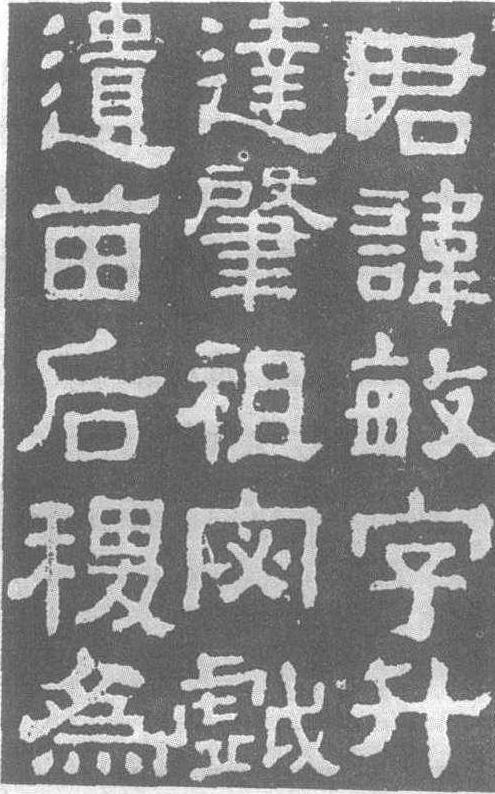 君諱敏字升
達肇祖宓戲
遺苗后稷為